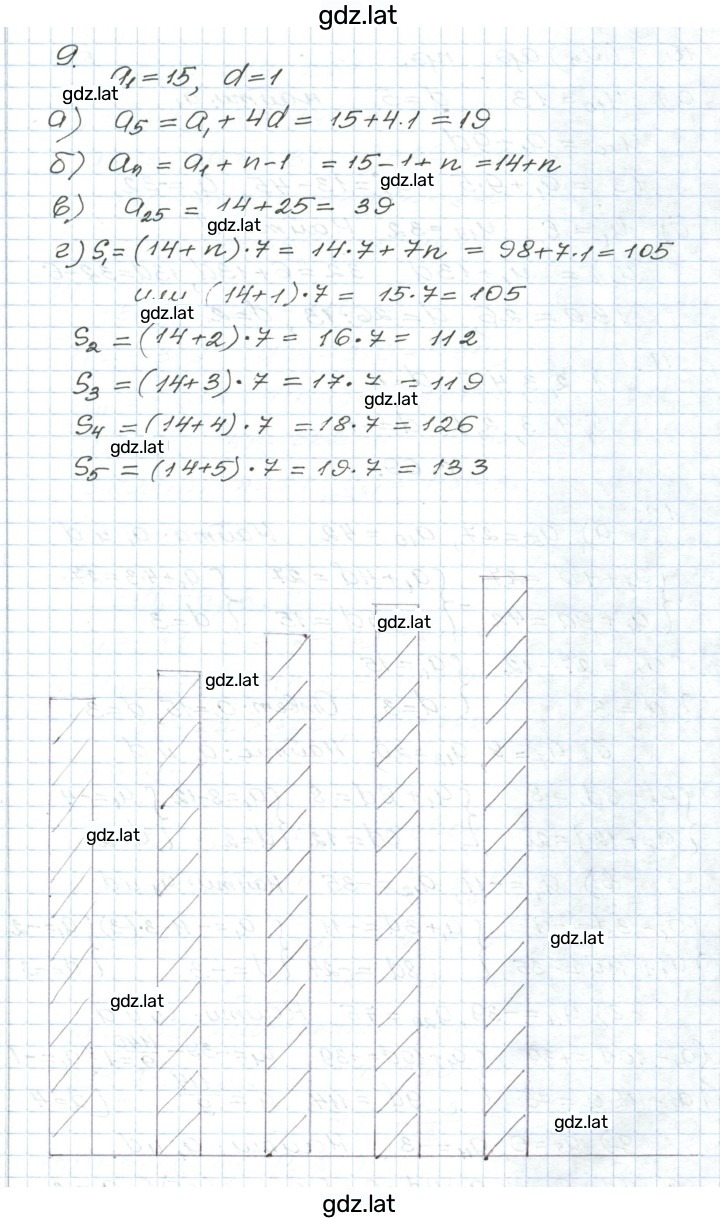 gdz.lat
9.
a₁ = 15, d = 1
gdz.lat
а) a₅ = a₁ + 4d = 15 + 4·1 = 19
б) aₙ = a₁ + n - 1 = 15 - 1 + n = 14 + n
gdz.lat
в) a₂₅ = 14 + 25 = 39
gdz.lat
г) S₁ = (14 + n)·7 = 14·7 + 7n = 98 + 7·1 = 105
или (14 + 1)·7 = 15·7 = 105
gdz.lat
S₂ = (14 + 2)·7 = 16·7 = 112
S₃ = (14 + 3)·7 = 17·7 = 119
gdz.lat
S₄ = (14 + 4)·7 = 18·7 = 126
gdz.lat
S₅ = (14 + 5)·7 = 19·7 = 133
gdz.lat
gdz.lat
gdz.lat
gdz.lat
gdz.lat
gdz.lat
gdz.lat